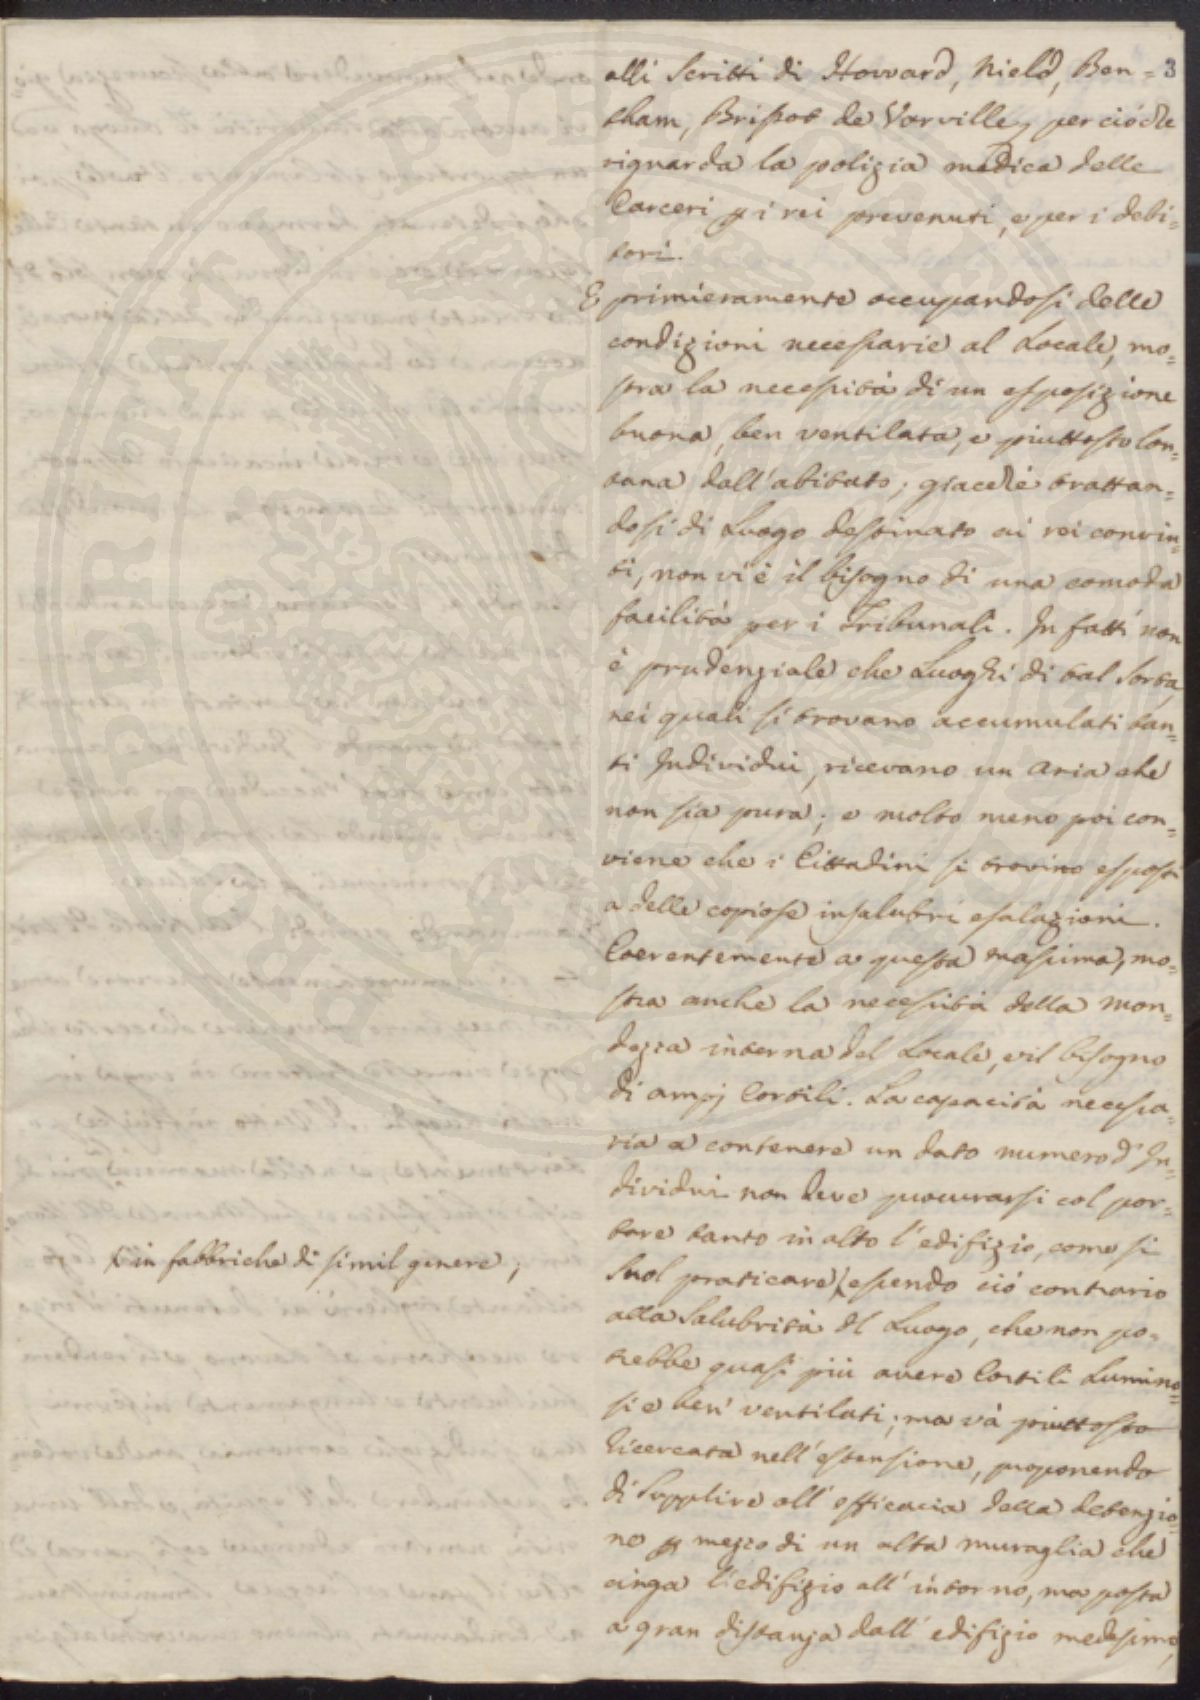 alli Scritti di Howard, Nield, Ben= 3
tham, Brissot de Varville, per ciò che
riguarda la polizia medica delle
Carceri p i rei prevenuti, e per i debi=
tori.
E primieramente occupandosi delle
condizioni necessarie al Locale, mo=
stra la necessità di un esposizione
buona, ben ventilata, e piuttosto lon=
tana dall'abitato; giacchè trattan=
dosi di Luogo destinato ai rei convin=
ti, non vi è il bisogno di una comoda
facilità per i Tribunali. In fatti non
è prudenziale che Luoghi di tal sorta,
nei quali si trovano accumulati tan=
ti Individui, ricevano un aria che
non sia pura; e molto meno poi con=
viene che i Cittadini si trovino esposti
a delle copiose insalubri esalazioni.
Coerentemente a questa massima, mo=
stra anche la necessità della mon=
dezza interna del Locale, e il bisogno
di ampj Cortili. La capacità necessa=
ria a contenere un dato numero d'In=
dividui non deve procurarsi col por=
tare tanto in alto l'edifizio, come si
suol praticare, essendo ciò contrario
in fabbriche di simil genere;
alla Salubrità del Luogo, che non po=
trebbe quasi più avere Cortili Lumino=
si e ben ventilati; ma và piuttosto
ricercata nell'estensione, proponendo
di supplire all'efficacia della detenzio=
ne p mezzo di un alta muraglia che
cinga l'edifizio all'intorno, ma posta
a gran distanza dall'edifizio medesimo,